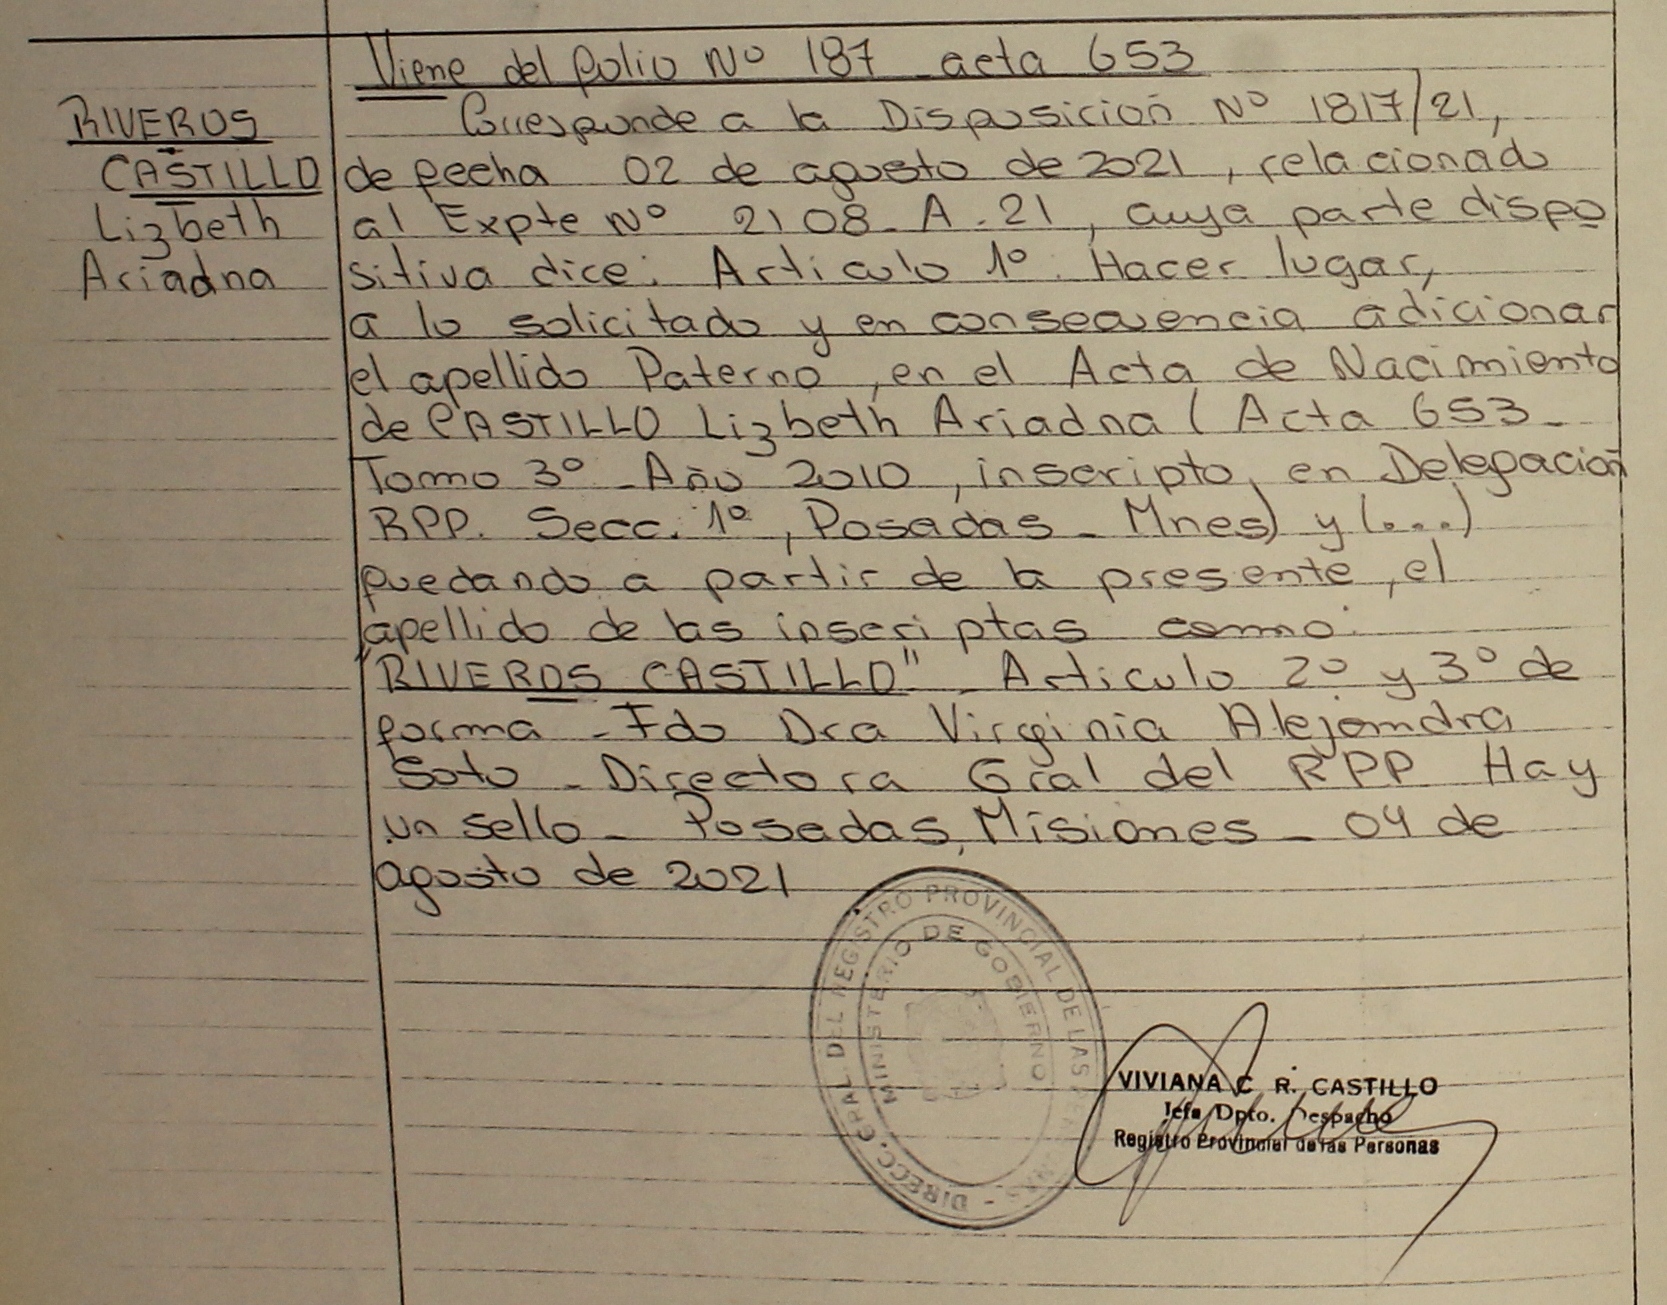 Viene del folio Nº 187 acta 653
RIVEROS
CASTILLO
Lizbeth
Ariadna
Corresponde a la Disposición Nº 1817/21,
de fecha 02 de agosto de 2021, relacionado
al Expte Nº 2108-A-21, cuya parte dispo
sitiva dice: Articulo 1º: Hacer lugar,
a lo solicitado y en consecuencia adicionar
el apellido Paterno, en el Acta de Nacimiento
de CASTILLO Lizbeth Ariadna (Acta 653-
Tomo 3º-Año 2010, inscripto, en Delegación
RPP. Secc. 1º, Posadas-Mnes) y (...)
quedando a partir de la presente, el
apellido de las inscriptas como:
"RIVEROS CASTILLO" - Articulo 2º y 3º de
forma - Fdo Dra Virginia Alejandra
Soto - Directora Gral del RPP Hay
un sello - Posadas, Misiones - 04 de
agosto de 2021
DIRECC. GRAL. DEL REGISTRO PROVINCIAL DE LAS PERSONAS -
MINISTERIO DE GOBIERNO
VIVIANA C. R. CASTILLO
Jefa Dpto. Despacho
Registro Provincial de las Personas